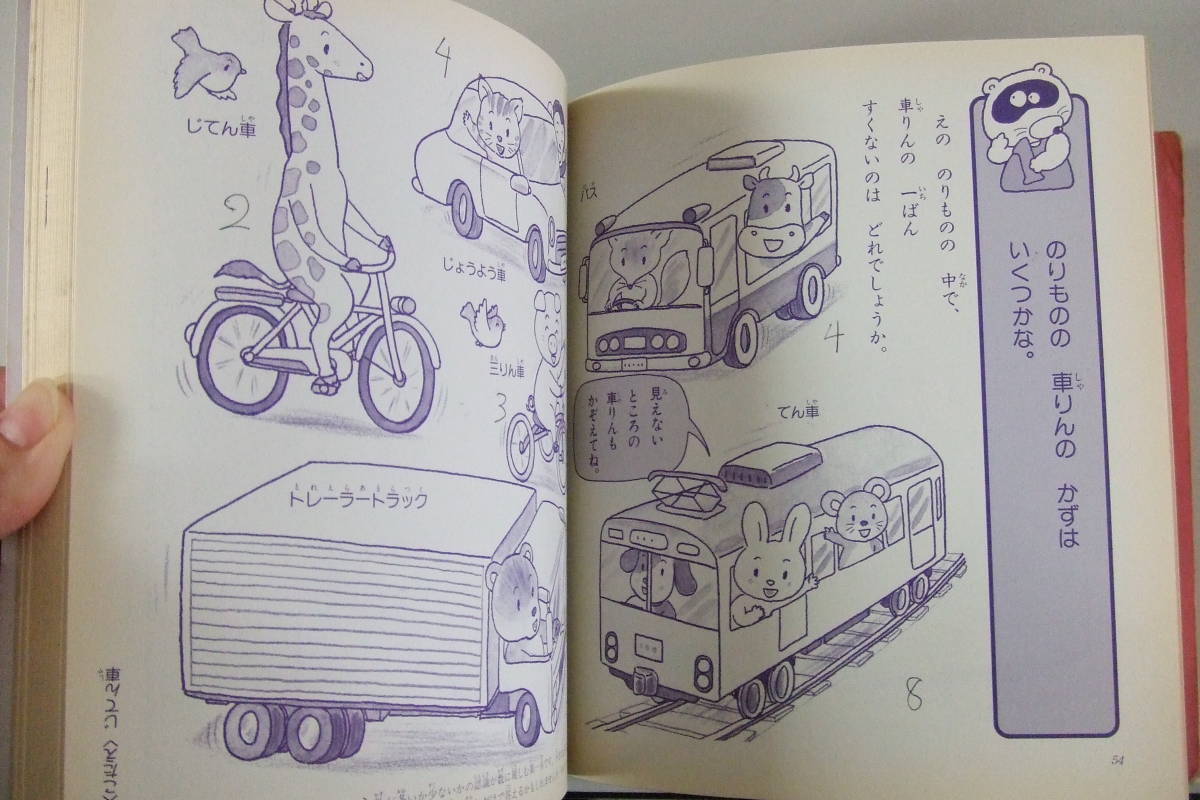 のりものの 車りんの かずは
いくつかな。
えの のりものの 中で、
車りんの 一ばん
すくないのは どれでしょうか。
バス
4
見えない
ところの
車りんも
かぞえてね。
てん車
8
54
4
じてん車
2
じょうよう車
三りん車
3
トレーラートラック
〈こたえ〉 じてん車